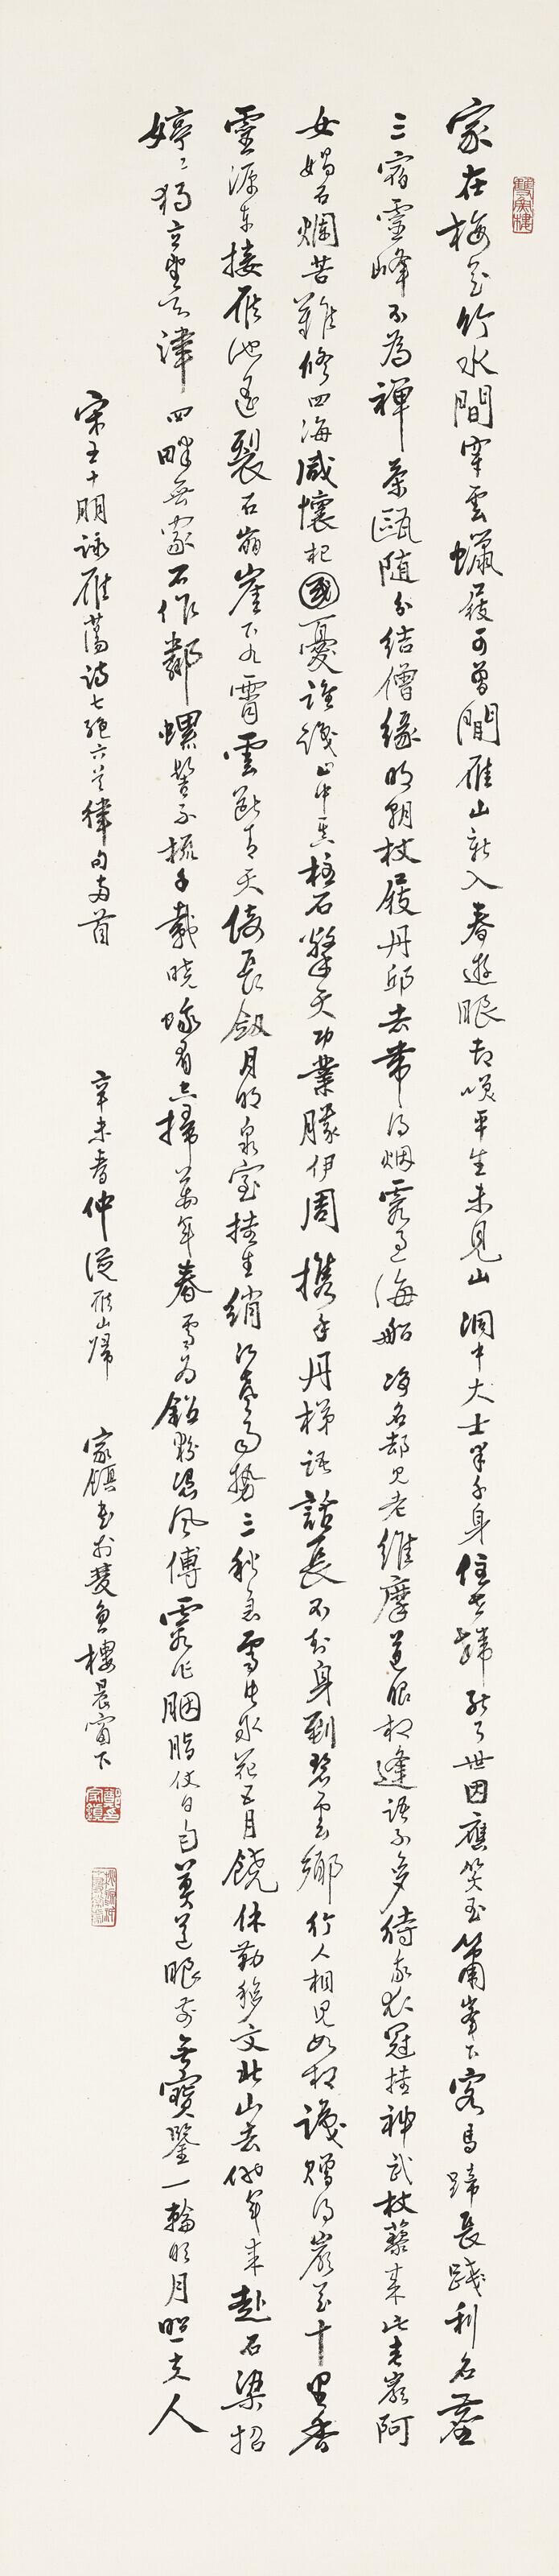 雙魚樓
家在梅花竹水間穿雲蠟屐可曾閒雁山新入春遊眼却嘆平生未見山洞中大士半千身住世諦能了世因應笑玉簫峯下客馬蹄長踐利名塵
三宿靈峰不為禪茶甌隨分結僧緣明朝杖屨丹邱去帶得烟霞過海船淨名却見老維摩道眼相逢語不多待我衣冠挂神武杖藜來此老巖阿
女媧石爛苦難修四海咸懷杞國憂誰識山中真柱石擎天功業勝伊周携手丹梯語話長不知身到碧雲鄉行人相見如相識贈得巖花十里香
靈源東接雁池遥裂石崩崖下九霄雲斷青天倚長劔月明泉室挂生綃江聲雨勢三秋急雪片冰花五月饒休勒移文北山去他年來赴石梁招
婷婷獨立望天津四畔無家石作鄰螺髻不梳千載曉蛾眉空掃萬年春雪為鉛粉憑風傅霞作胭脂仗日勻莫道眼前無寶鑒一輪明月照夫人
宋王十朋詠雁蕩詩七絕六首律句两首
辛未春仲從雁山歸
家鎮書於雙魚樓晨窗下